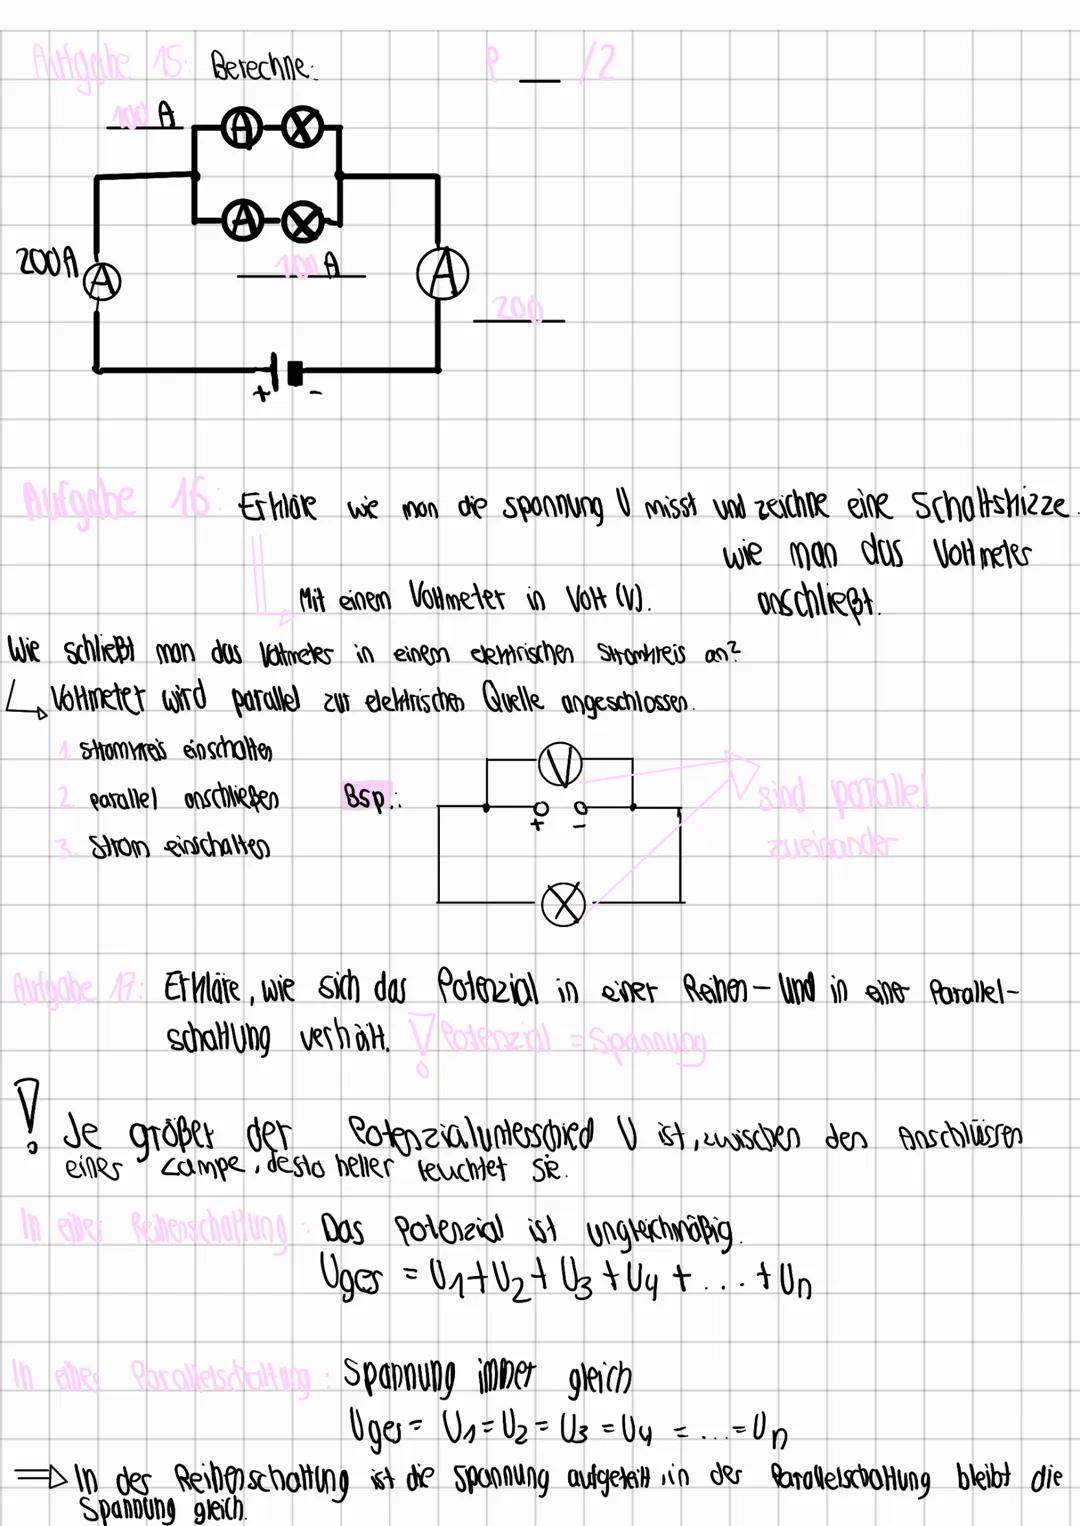 Aufgabe 15: Berechne: P __ /2
100 A
A X
A X
200A A
100 A
A
200
+ -
Aufgabe 16: Erkläre wie man die spannung U misst und zeichne eine Schaltskizze.
wie man das Voltmeter
anschließt.
Mit einem Voltmeter in Volt (V).
Wie schließt man das Voltmeter in einem elektrischen Stromkreis an?
Voltmeter wird parallel zur elektrischen Quelle angeschlossen.
1. Stromkreis einschalten
2. parallel anschließen
3. Strom einschalten
Bsp.:
V
+ -
X
sind parallel
zueinander
Aufgabe 17: Erkläre, wie sich das Potenzial in einer Reihen- und in einer Parallel-
schaltung verhält. ! Potenzial = Spannung
! Je größer der Potenzialunterschied U ist, zwischen den Anschlüssen
einer Lampe, desto heller leuchtet sie.
In einer Reihenschaltung: Das Potenzial ist ungleichmäßig.
Uges = U1+U2+U3+U4+...+Un
In einer Parallelschaltung: Spannung immer gleich
Uges = U1=U2=U3=U4=...=Un
⇒ In der Reihenschaltung ist die Spannung aufgeteilt, in der Parallelschaltung bleibt die
Spannung gleich.